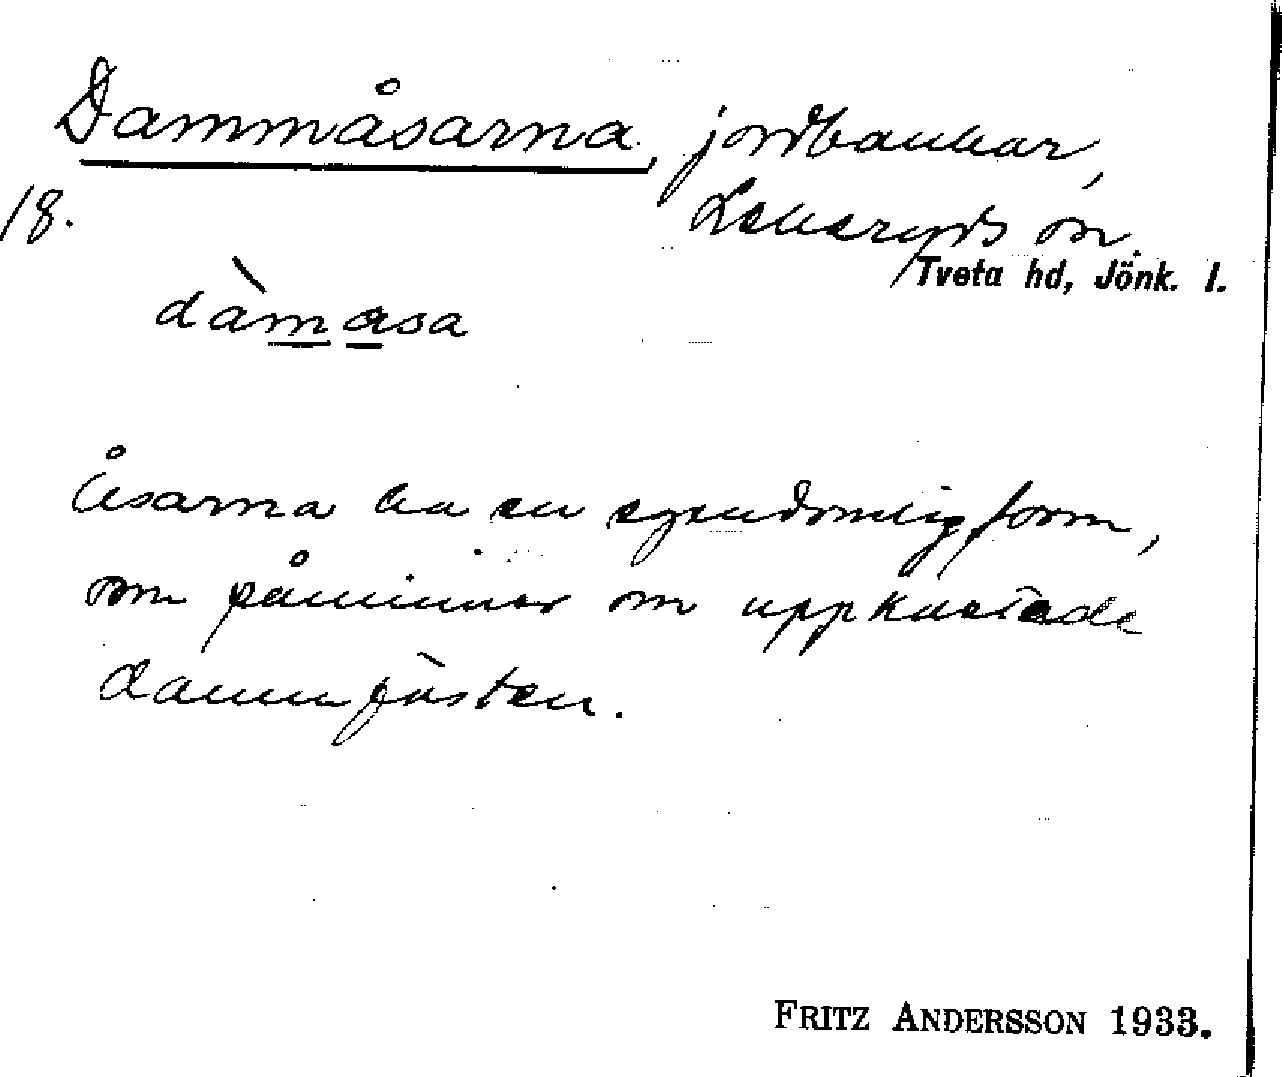 Dammåsarna, jordbankar,
18.
Lekeryds sn.
Tveta hd, Jönk. l.
dàmasa
Åsarna ha en egendomlig form,
som påminner om uppkastade
dammfästen.
FRITZ ANDERSSON 1933.